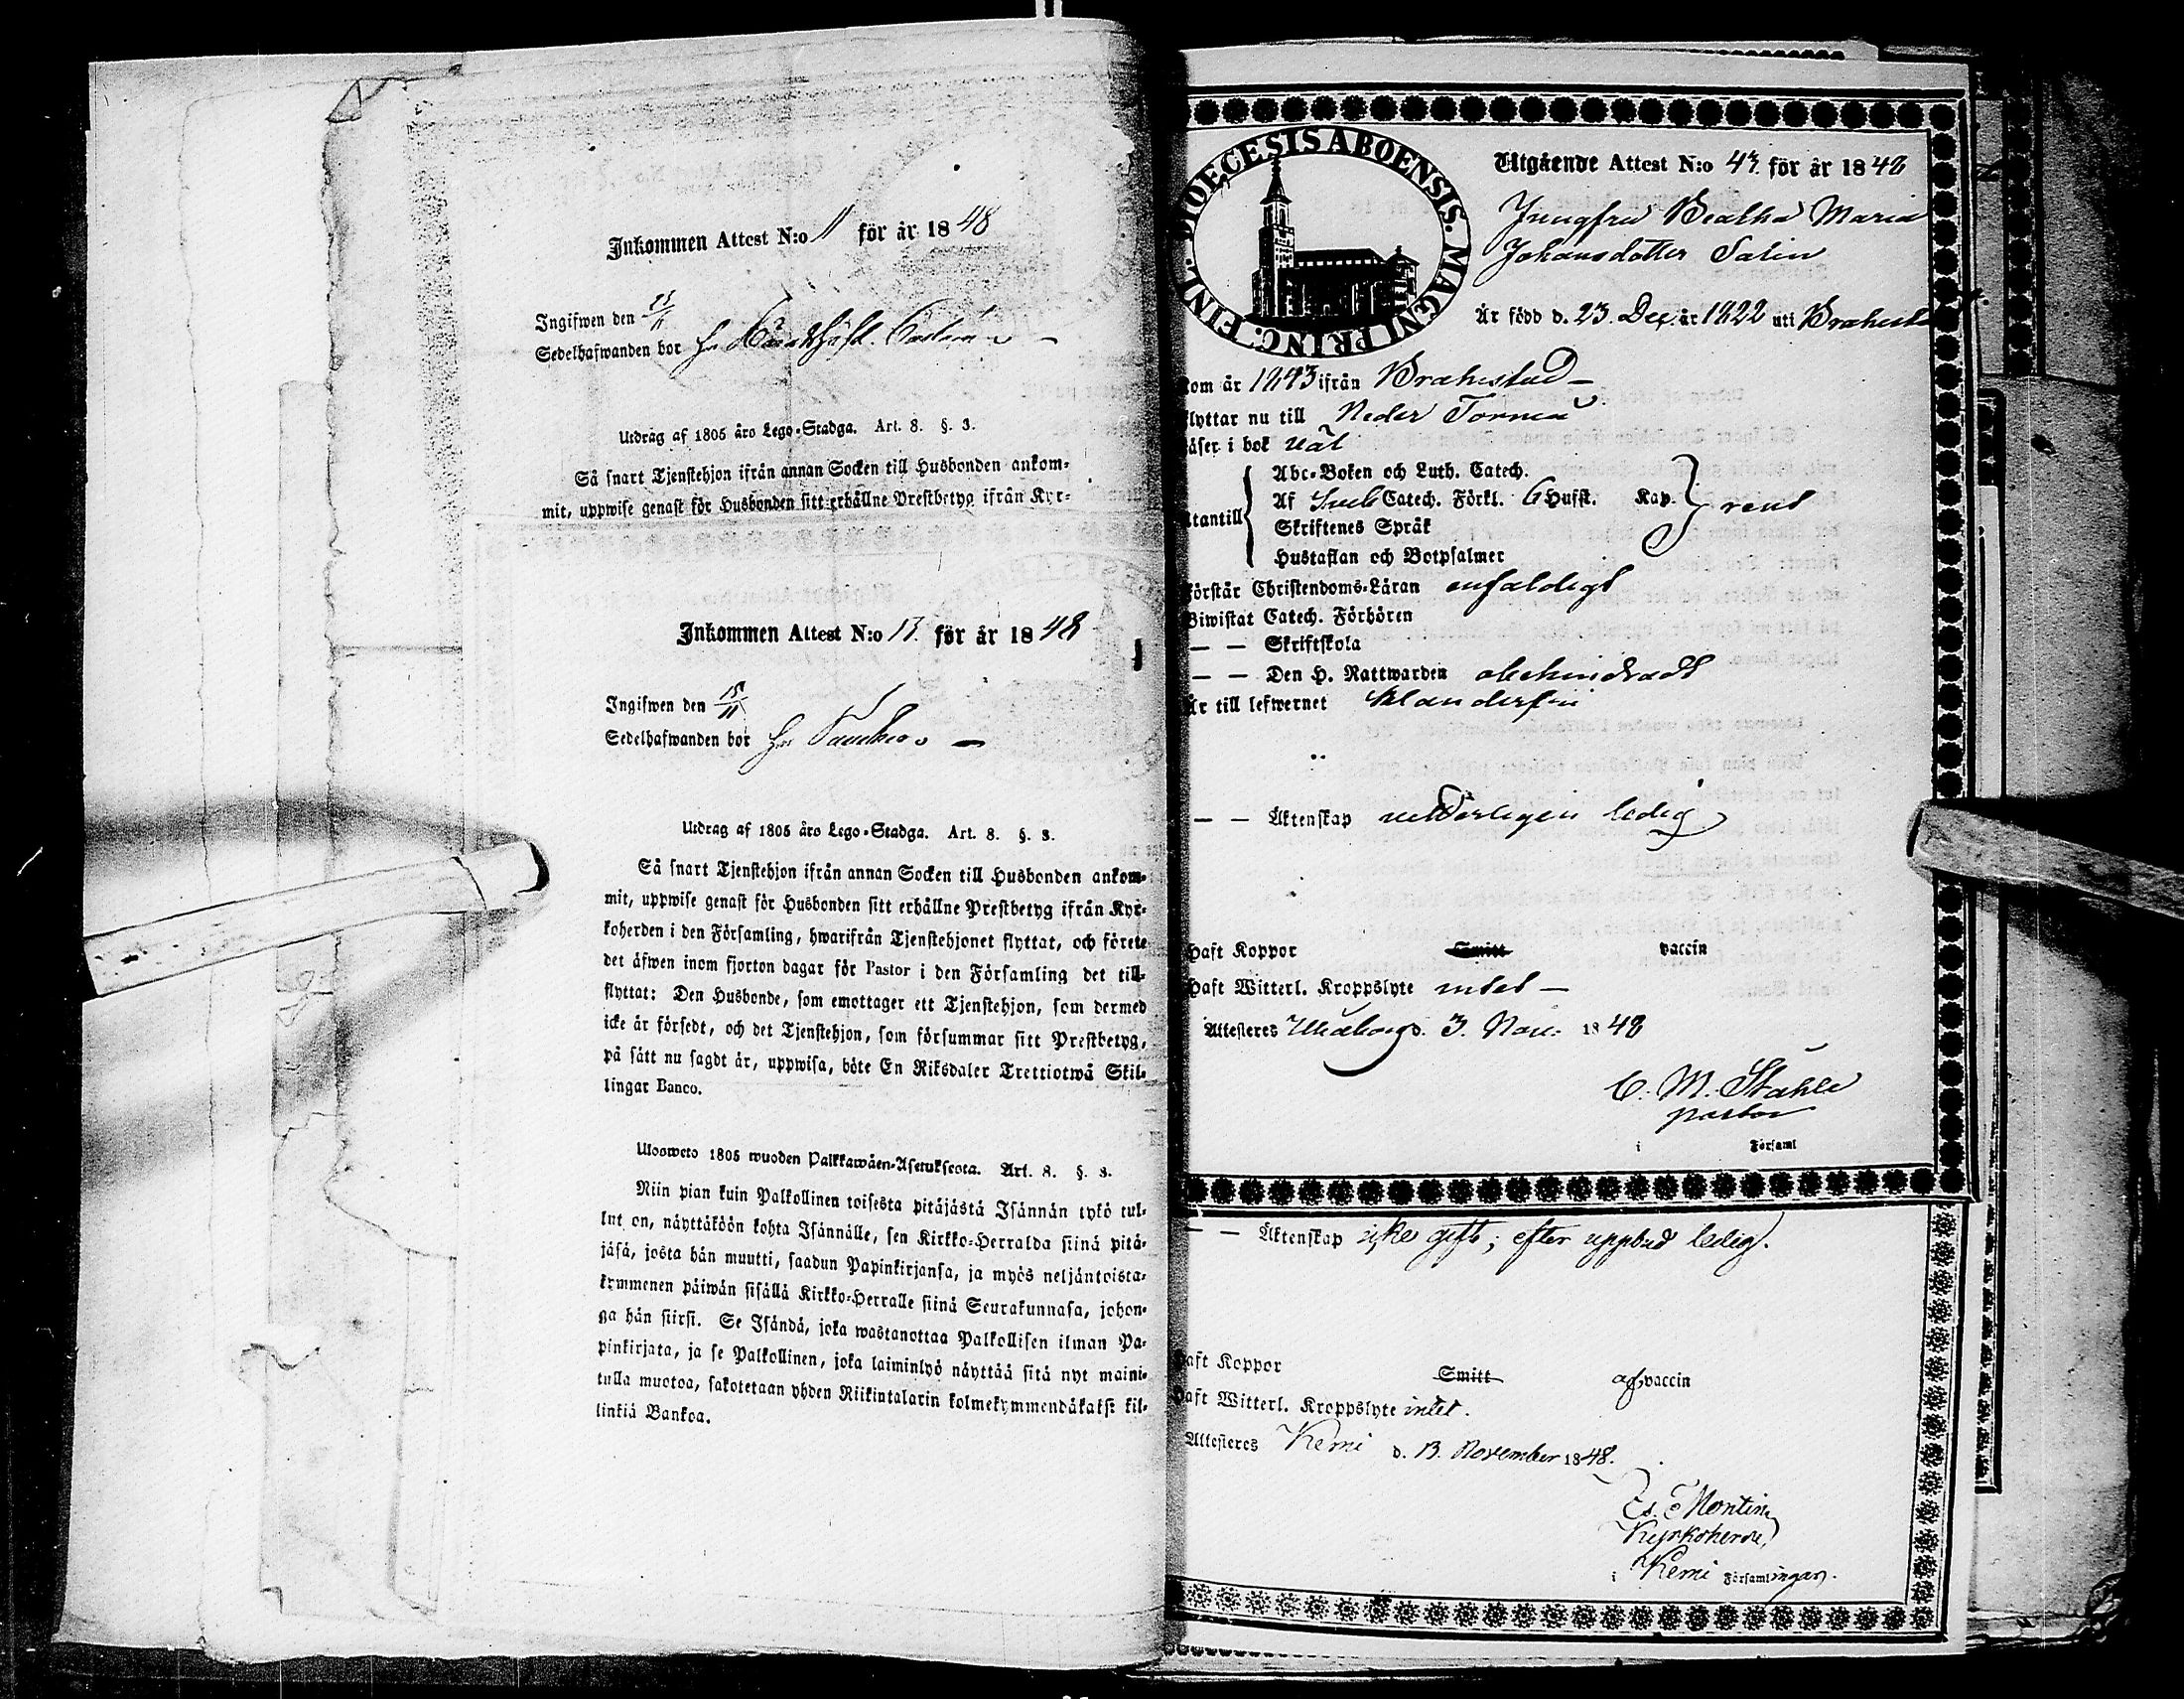 Inkommen Attest N:o 11 för år 1848
Ingifwen den 23/11
Sedelhafwanden bor hr
Utdrag af 1805 års Lego-Stadga. Art. 8. §. 3.
Så snart Tjenstehjon ifrån annan Socken till Husbonden ankom-
mit, uppwise genast för Husbonden sitt erhållne Prestbetyg ifrån Kyr-
Inkommen Attest N:o 13 för år 1848
Ingifwen den 15/11
Sedelhafwanden bor hr
Utdrag af 1805 års Lego-Stadga. Art. 8. §. 3.
Så snart Tjenstehjon ifrån annan Socken till Husbonden ankom-
mit, uppwise genast för Husbonden sitt erhållne Prestbetyg ifrån Kyr-
koherden i den Församling, hwarifrån Tjenstehjonet flyttat, och förete
det äfwen inom fjorton dagar för Pastor i den Församling det till-
flyttat: Den Husbonde, som emottager ett Tjenstehjon, som dermed
icke är försedt, och det Tjenstehjon, som försummar sitt Prestbetyg,
på sätt nu sagdt är, uppwisa, böte En Riksdaler Trettiotwå Skil-
lingar Banco.
Ulosweto 1805 wuoden Palkkawäen-Asetuksesta. Art. 8. §. 3.
Niin pian kuin Palkollinen toisesta pitäjästä Isännän tykö tul-
lut on, näyttäköön kohta Isännälle, sen Kirkko-Herralda siinä pitä-
jäsä, josta hän muutti, saadun Papinkirjansa, ja myös neljäntoista-
kymmenen päiwän sisällä Kirkko-Herralle siinä Seurakunnasa, johon-
ga hän siirsi. Se Isändä, joka wastanottaa Palkollisen ilman Pa-
pinkirjata, ja se Palkollinen, joka laiminlyö näyttää sitä nyt maini-
tulla muotoa, sakotetaan yhden Riikintalarin kolmekymmendäkaksi kil-
linkiä Bankoa.
DIOECESIS ABOENSIS. MAGNI PRINC. FINL.
Utgående Attest N:o 43 för år 1848
Jungfru Beatha Maria
Johansdotter Salin
Är född d. 23. Dec. år 1822 uti Brahestad
kom år 1843 ifrån Brahestad
flyttar nu till Neder Torneå
Läser i bok väl
Abc-Boken och Luth. Catech.
Af Sveb Catech. Förkl. 6 Hufst. Kap.
Utantill rent
Skriftenes Språk
Hustaflan och Botpsalmer
Förstår Christendoms-Läran enfaldigt
Biwistat Catech. Förhören
— — Skriftskola
— — Den H. Nattwarden obehindradt
Är till lefwernet klanderfri
— — Äktenskap ledig
Haft Koppor Smitt vaccin
Haft Witterl. Kroppslyte intet —
Attesteres Uleåborg d. 3. Nov. 1848
C. M. Ståhle
pastor
i Församl
— — Äktenskap icke gift; efter uppbud ledig.
Haft Koppor Smitt af vaccin
Haft Witterl. Kroppslyte intet.
Attesteres Kemi d. 13. November 1848.
Es. Montin
Kyrkoherde
i Kemi Församlingar.